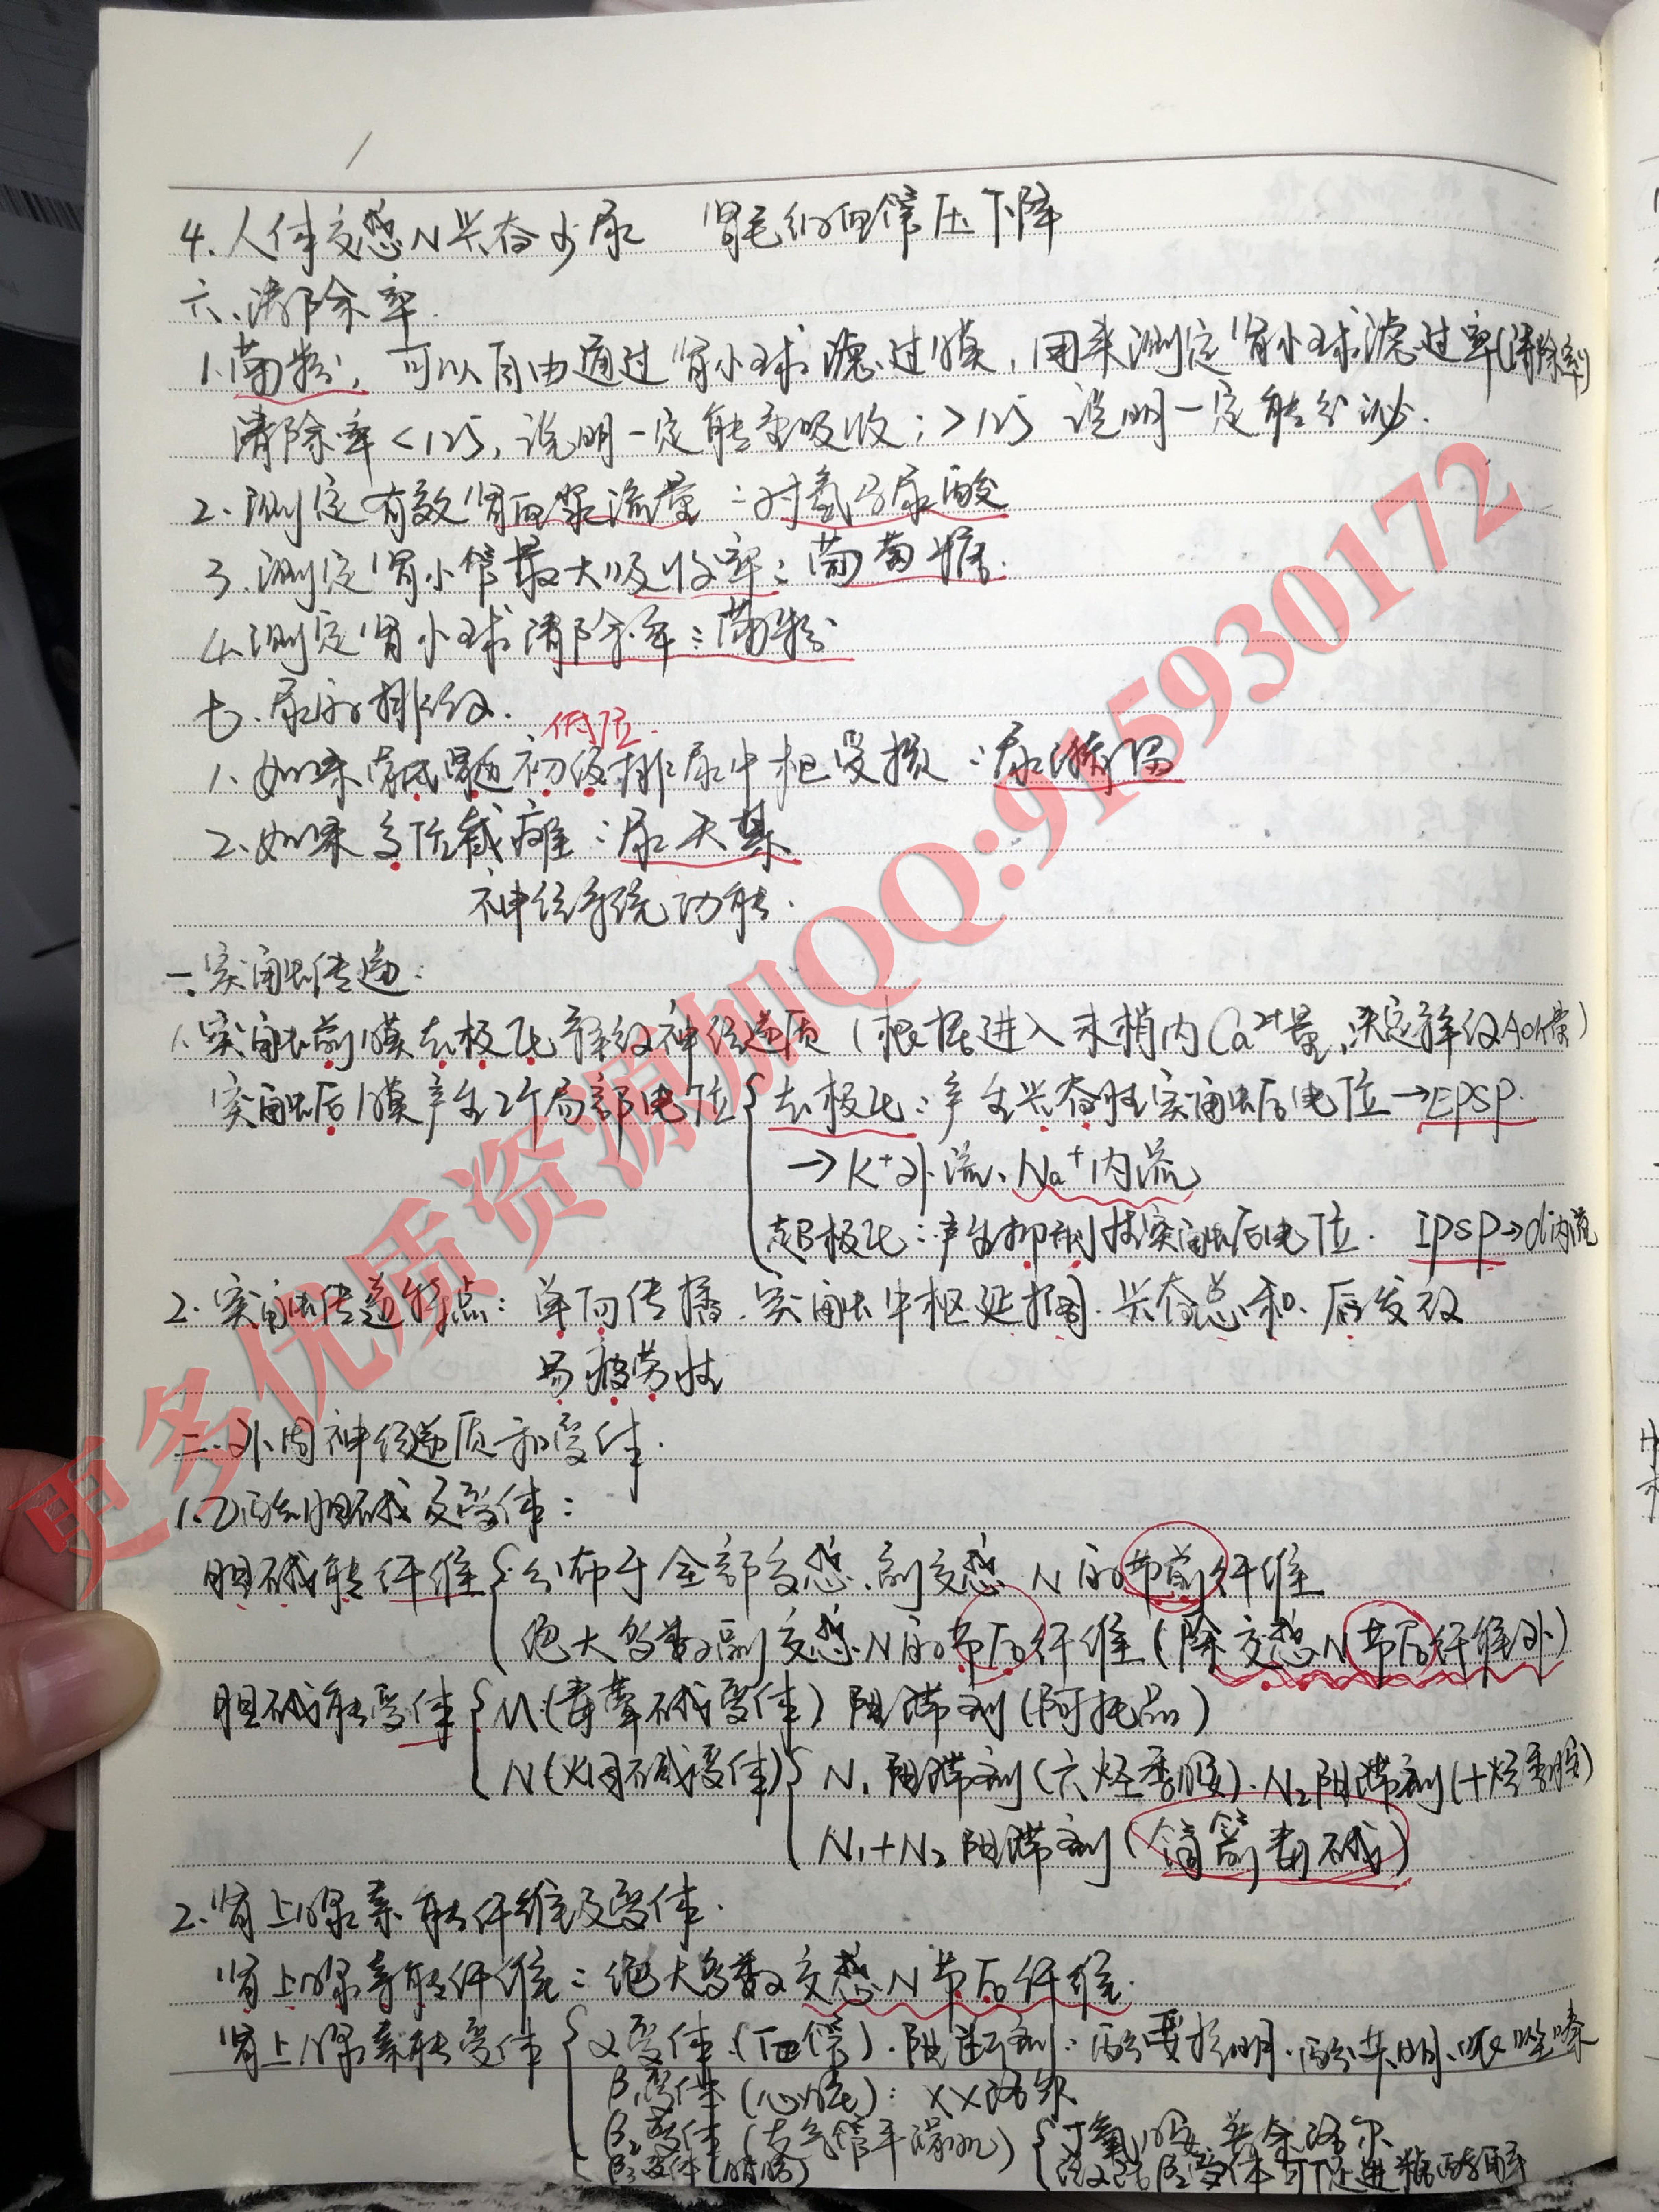 4.人体交感N兴奋少尿 肾毛细血管压下降
六、清除率.
1.菊粉,可以自由通过肾小球滤过膜,用来测定肾小球滤过率(清除率)
清除率<125,说明一定能重吸收;>125 说明一定能分泌.
2.测定有效肾血浆流量:对氨马尿酸
3.测定肾小管最大吸收率:葡萄糖.
4.测定肾小球清除率:菊粉
七、尿的排放.
低位.
1.如果骶髓初级排尿中枢受损:尿潴留
2.如果高位截瘫:尿失禁
神经系统功能.
一.突触传递:
1.突触前膜去极化释放神经递质(根据进入末梢内Ca2+量,决定释放Ach量)
突触后膜产生2个局部电位{去极化:产生兴奋性突触后电位→EPSP.
→K+外流、Na+内流
超极化:产生抑制性突触后电位. IPSP→cl内流
2.突触传递特点:单向传播.突触中枢延搁.兴奋总和.后发放
易疲劳性
二.外周神经递质和受体.
1.乙酰胆碱及受体:
胆碱能纤维{分布于全部交感、副交感N的节前纤维
绝大多数副交感N的节后纤维(除交感N节后纤维外)
胆碱能受体{M(毒蕈碱受体)阻滞剂(阿托品)
N(烟碱受体){N1阻滞剂(六烃季胺).N2阻滞剂(十烃季胺)
N1+N2阻滞剂(筒箭毒碱)
2.肾上腺素能纤维及受体.
肾上腺素能纤维:绝大多数交感N节后纤维.
肾上腺素能受体{α受体(血管).阻断剂:酚妥拉明.酚苄明、哌唑嗪
β1受体(心脏):XX洛尔
β2受体(支气管平滑肌){丁氧胺 普萘洛尔
β3受体(脂肪) β2受体可促进糖酵解
更多优质资源加QQ:915930172